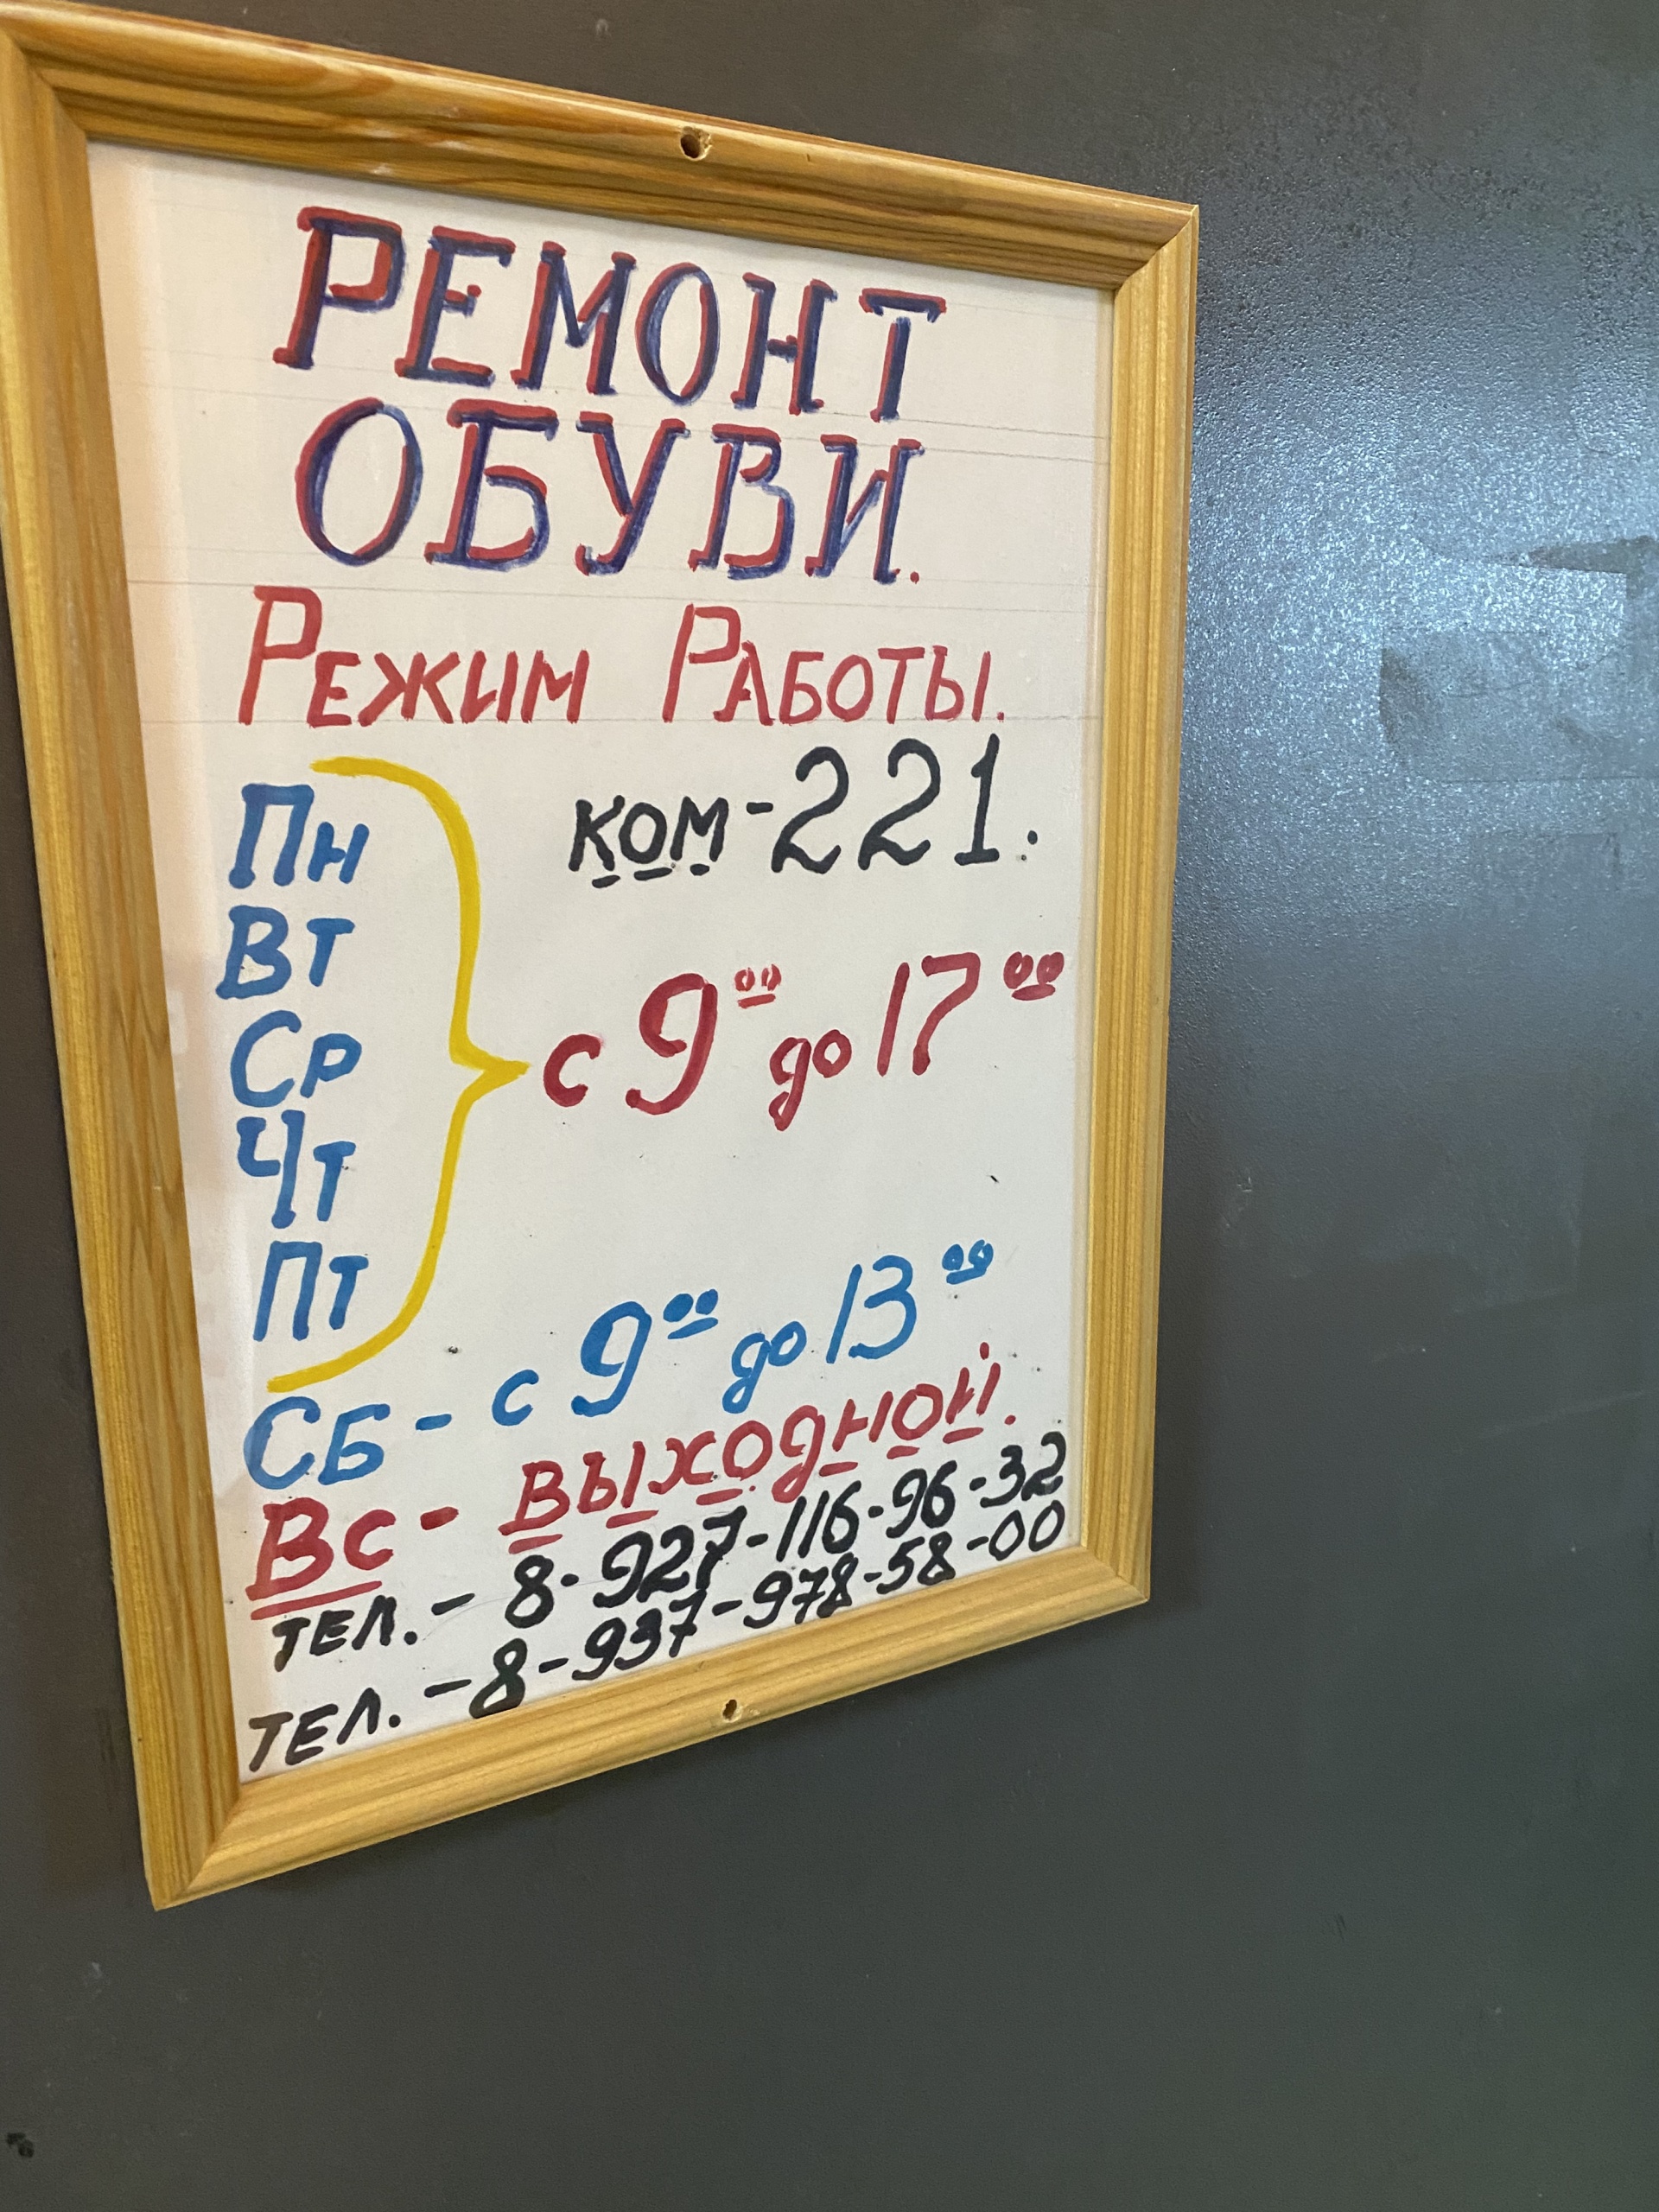 РЕМОНТ
ОБУВИ.
РЕЖИМ РАБОТЫ.
КОМ-221.
Пн
Вт
Ср
Чт
Пт
с 9 00 до 17 00
СБ - с 9 00 до 13 00
Вс - выходной.
ТЕЛ. - 8-927-116-96-32
ТЕЛ. - 8-937-978-58-00